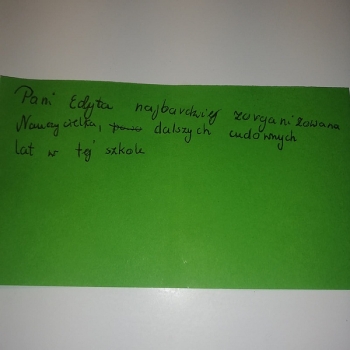 Pani Edyta najbardziej zorganizowana
Nauczycielka, dalszych cudownych
lat w tej szkole